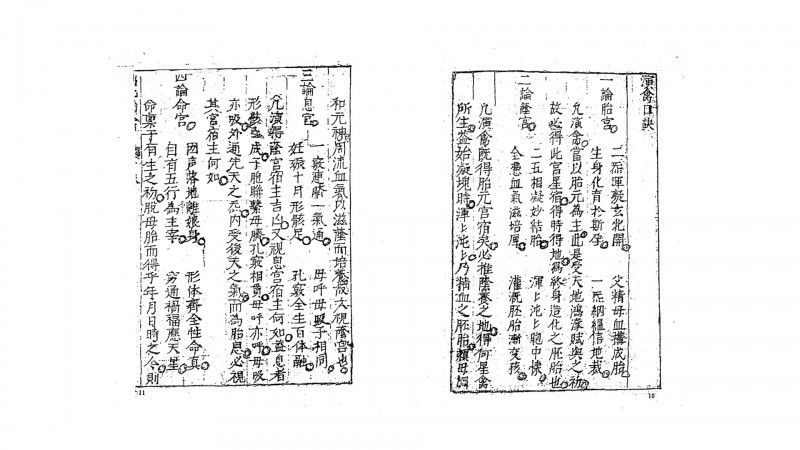 演禽口訣
一論胎宮
二炁渾凝玄牝開 父精母血搆成胎
生身化育於斯坐 一炁絪緼信地裁
凡演禽當以胎元為主此是受天地鴻濛賦與之初
故必得此宮星宿得時得地為終身造化之胚胎也
二論蔭宮
二五相凝妙結胎 渾匕沌匕胞中懷
全憑血氣滋培厚 灌溉胚胎漸变孩
凡演禽既得胎元宮宿矣必推蔭養之地得何星禽
所生蓋始凝塊時渾匕沌匕乃精血之胚胎賴母調
10
和元神周流血氣以滋蔭而培養故大視蔭宮也
三論息宮
一竅連臍一氣通 母呼母吸子相同
妊娠十月形骸足 孔竅全生百体融
凡演得蔭宮宿主吉凶又視息宮宿主何如蓋息者
形骸生成于胞聯繫母臍孔竅相貫母呼亦呼母吸
亦吸外通先天之炁内受後天之氣而為胎息必視
其宮宿主何如
四論命宮
㘞声落地離娘身 形体齐全性命真
自有五行為主宰 穷通禍福應天星
命稟于有生之初脫母胎而得乎年月日時之令則
11